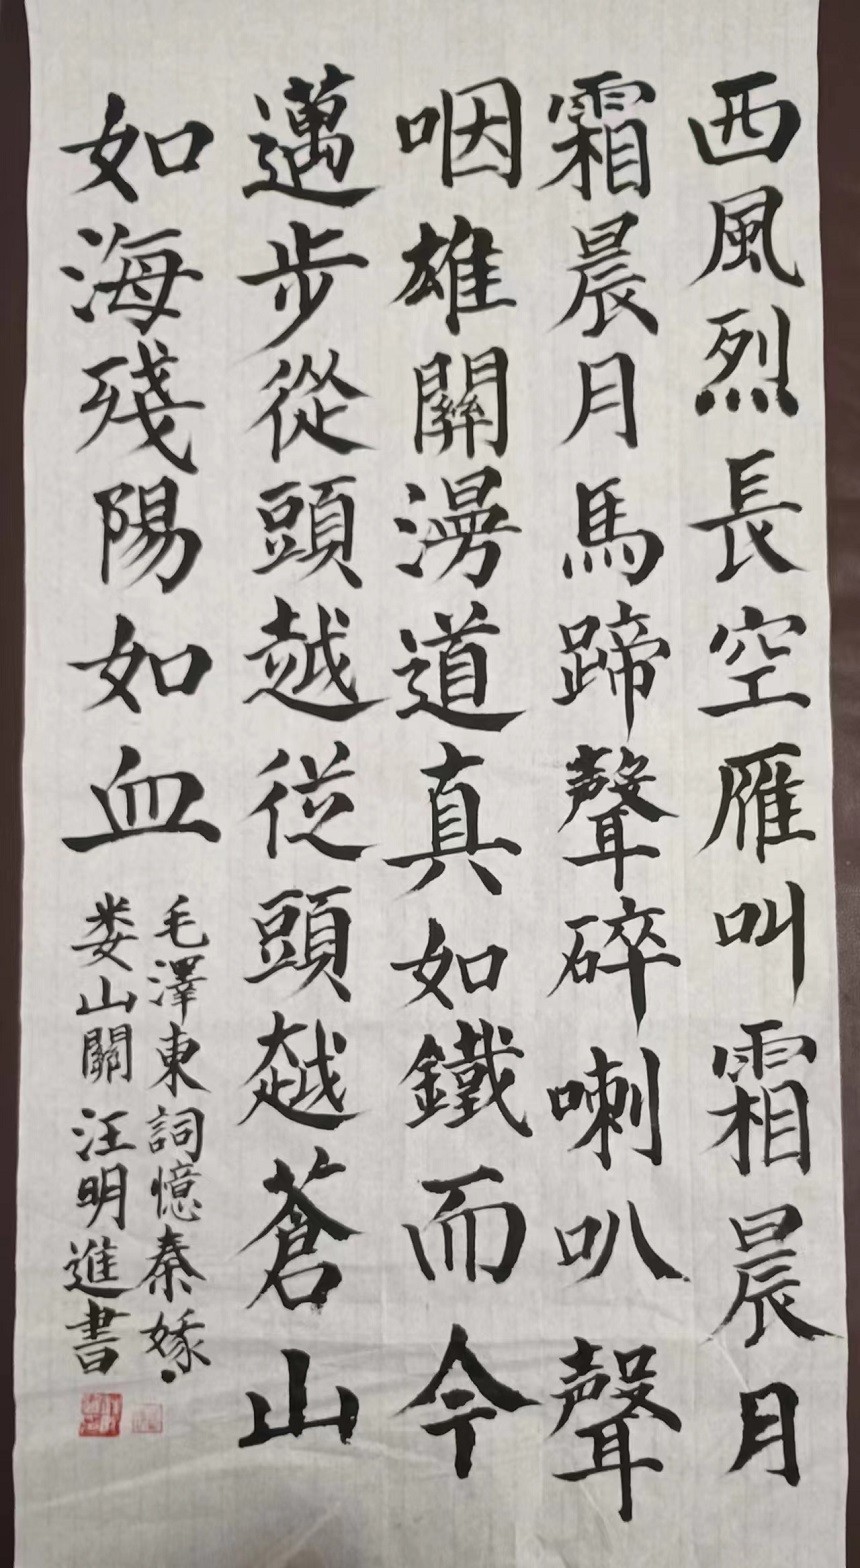 西風烈長空雁叫霜晨月
霜晨月馬蹄聲碎喇叭聲
咽雄關漫道真如鐵而今
邁步從頭越従頭越蒼山
如海殘陽如血
毛澤東詞憶秦娥·
娄山關汪明進書